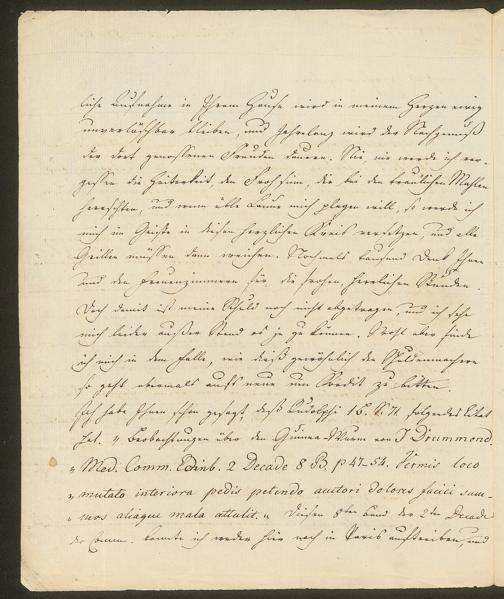 liche Aufnahme in Ihrem Hause wird in meinem Herzen ewig
unverlöschbar bleiben, und Jahrelang wird der Nachgenuß
der dort genossenen Freuden dauern. Nie, nie werde ich ver-
gessen die Heiterkeit, den Frohsinn, die bei den traulichen Mahlen
herrschten, und wenn üble Laune mich plagen will, so werde ich
mich im Geiste in diesen herzlichen Kreis versetzen, und alle
Grillen müssen dann weichen. Nochmals tausend Dank Ihnen
und den Frauenzimmern für die frohen, herrlichen Stunden.
Doch damit ist meine Schuld noch nicht abgetragen, und ich sehe
mich leider außer Stand es je zu können. Wohl aber finde
ich mich in dem Falle, wie dieß gewöhnlich der Schuldenmacher
so geht abermals aufs neue um Kredit zu bitten.
Ich habe Ihnen schon gesagt, daß Rudolphi folgendes Citat
hat. „Beobachtungen über den Guinea-Wurm von J Drummond.
„Med. Comm. Edinb. 2 Decade 8 B. p 47-54. Vermis loco
„mutato interiora pedis petendo auctori dolores fauci sum-
„mos aliaque mala attulit." Diesen 8ten Band der 2ten Decade
der Comm. konnte ich weder hier noch in Paris auftreiben, und